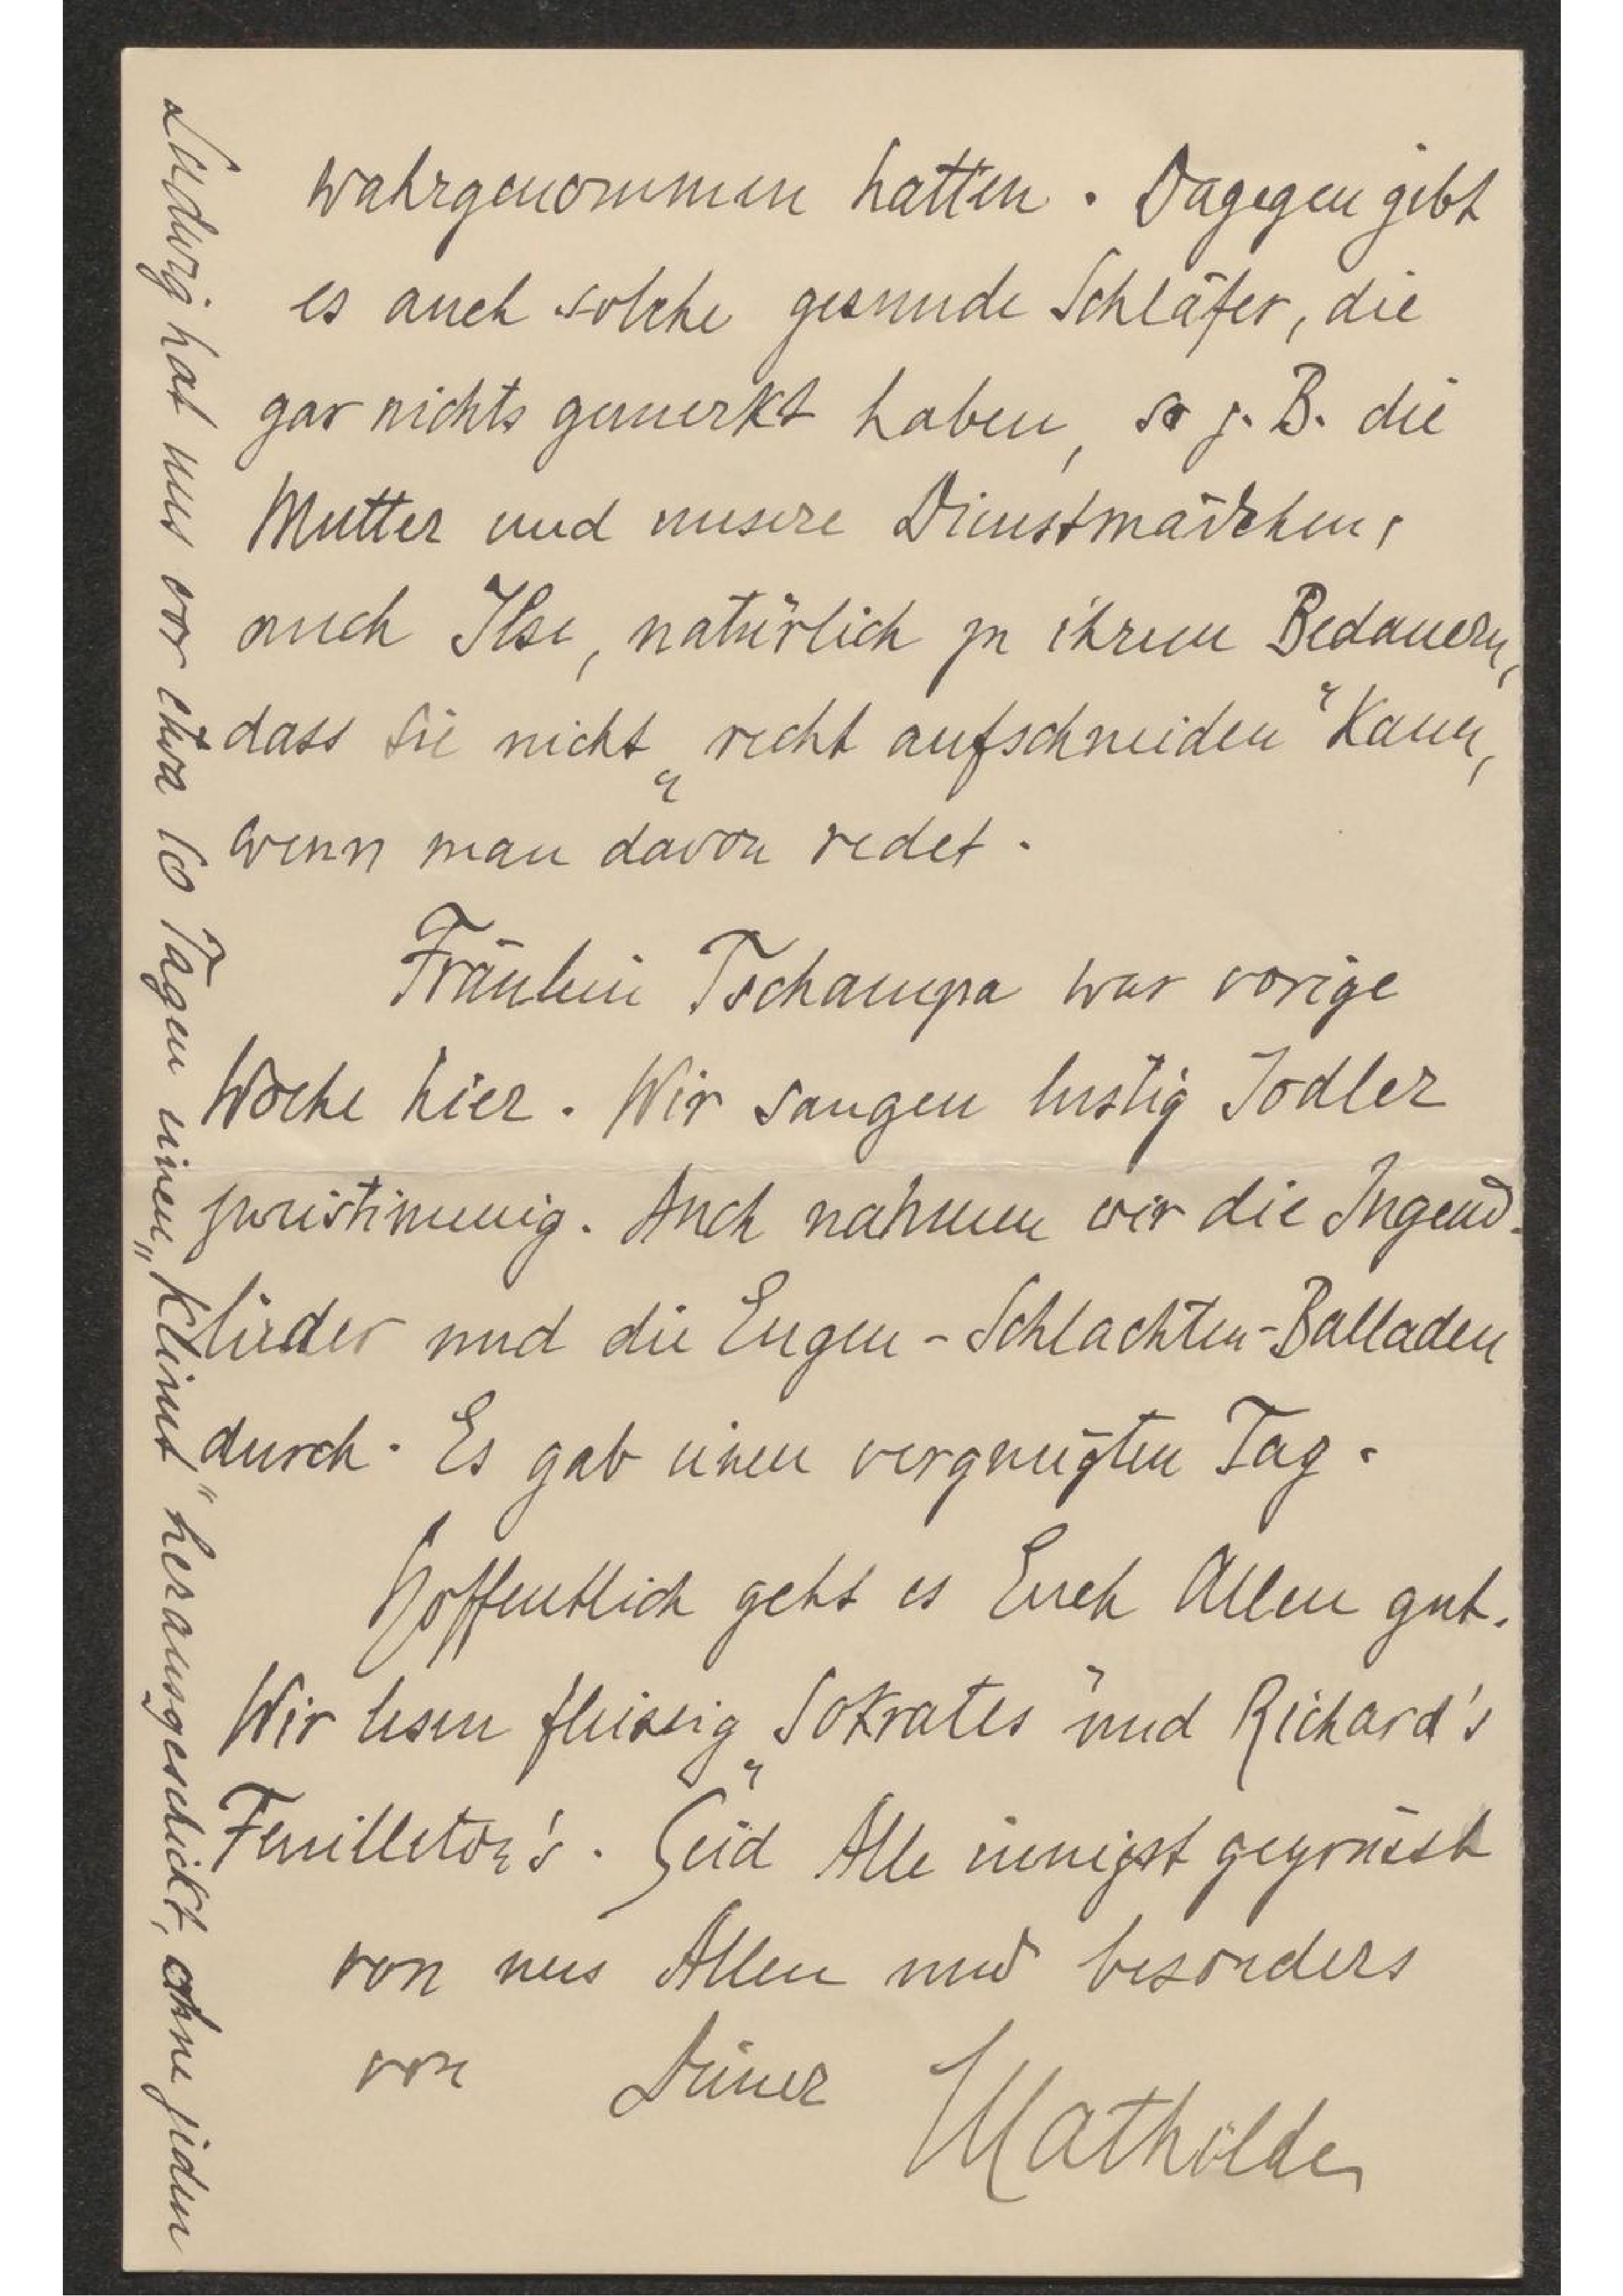 wahrgenommen hatten. Dagegen gibt
es auch solche gesunde Schläfer, die
gar nichts gemerkt haben, so z. B. die
Mutter und unsere Dienstmädchen,
auch Ilse, natürlich zu ihrem Bedauern,
dass sie nicht „recht aufschneiden“ kann,
wenn man davon redet.
Fräulein Tschampa war vorige
Woche hier. Wir sangen lustig Jodler
zweistimmig. Auch nahmen wir die Jugend-
lieder und die Eugen-Schlachten-Balladen
durch. Es gab einen vergnügten Tag.
Hoffentlich geht es Euch Allen gut.
Wir lesen fleissig „Sokrates“ und Richard's
Feuilleton's. Seid Alle innigst gegrüsst
von uns Allen und besonders
von Deiner Mathilde
Ludwig hat uns vor etwa 10 Tagen einen „Klimt“ herausgeschickt, ohne jeden